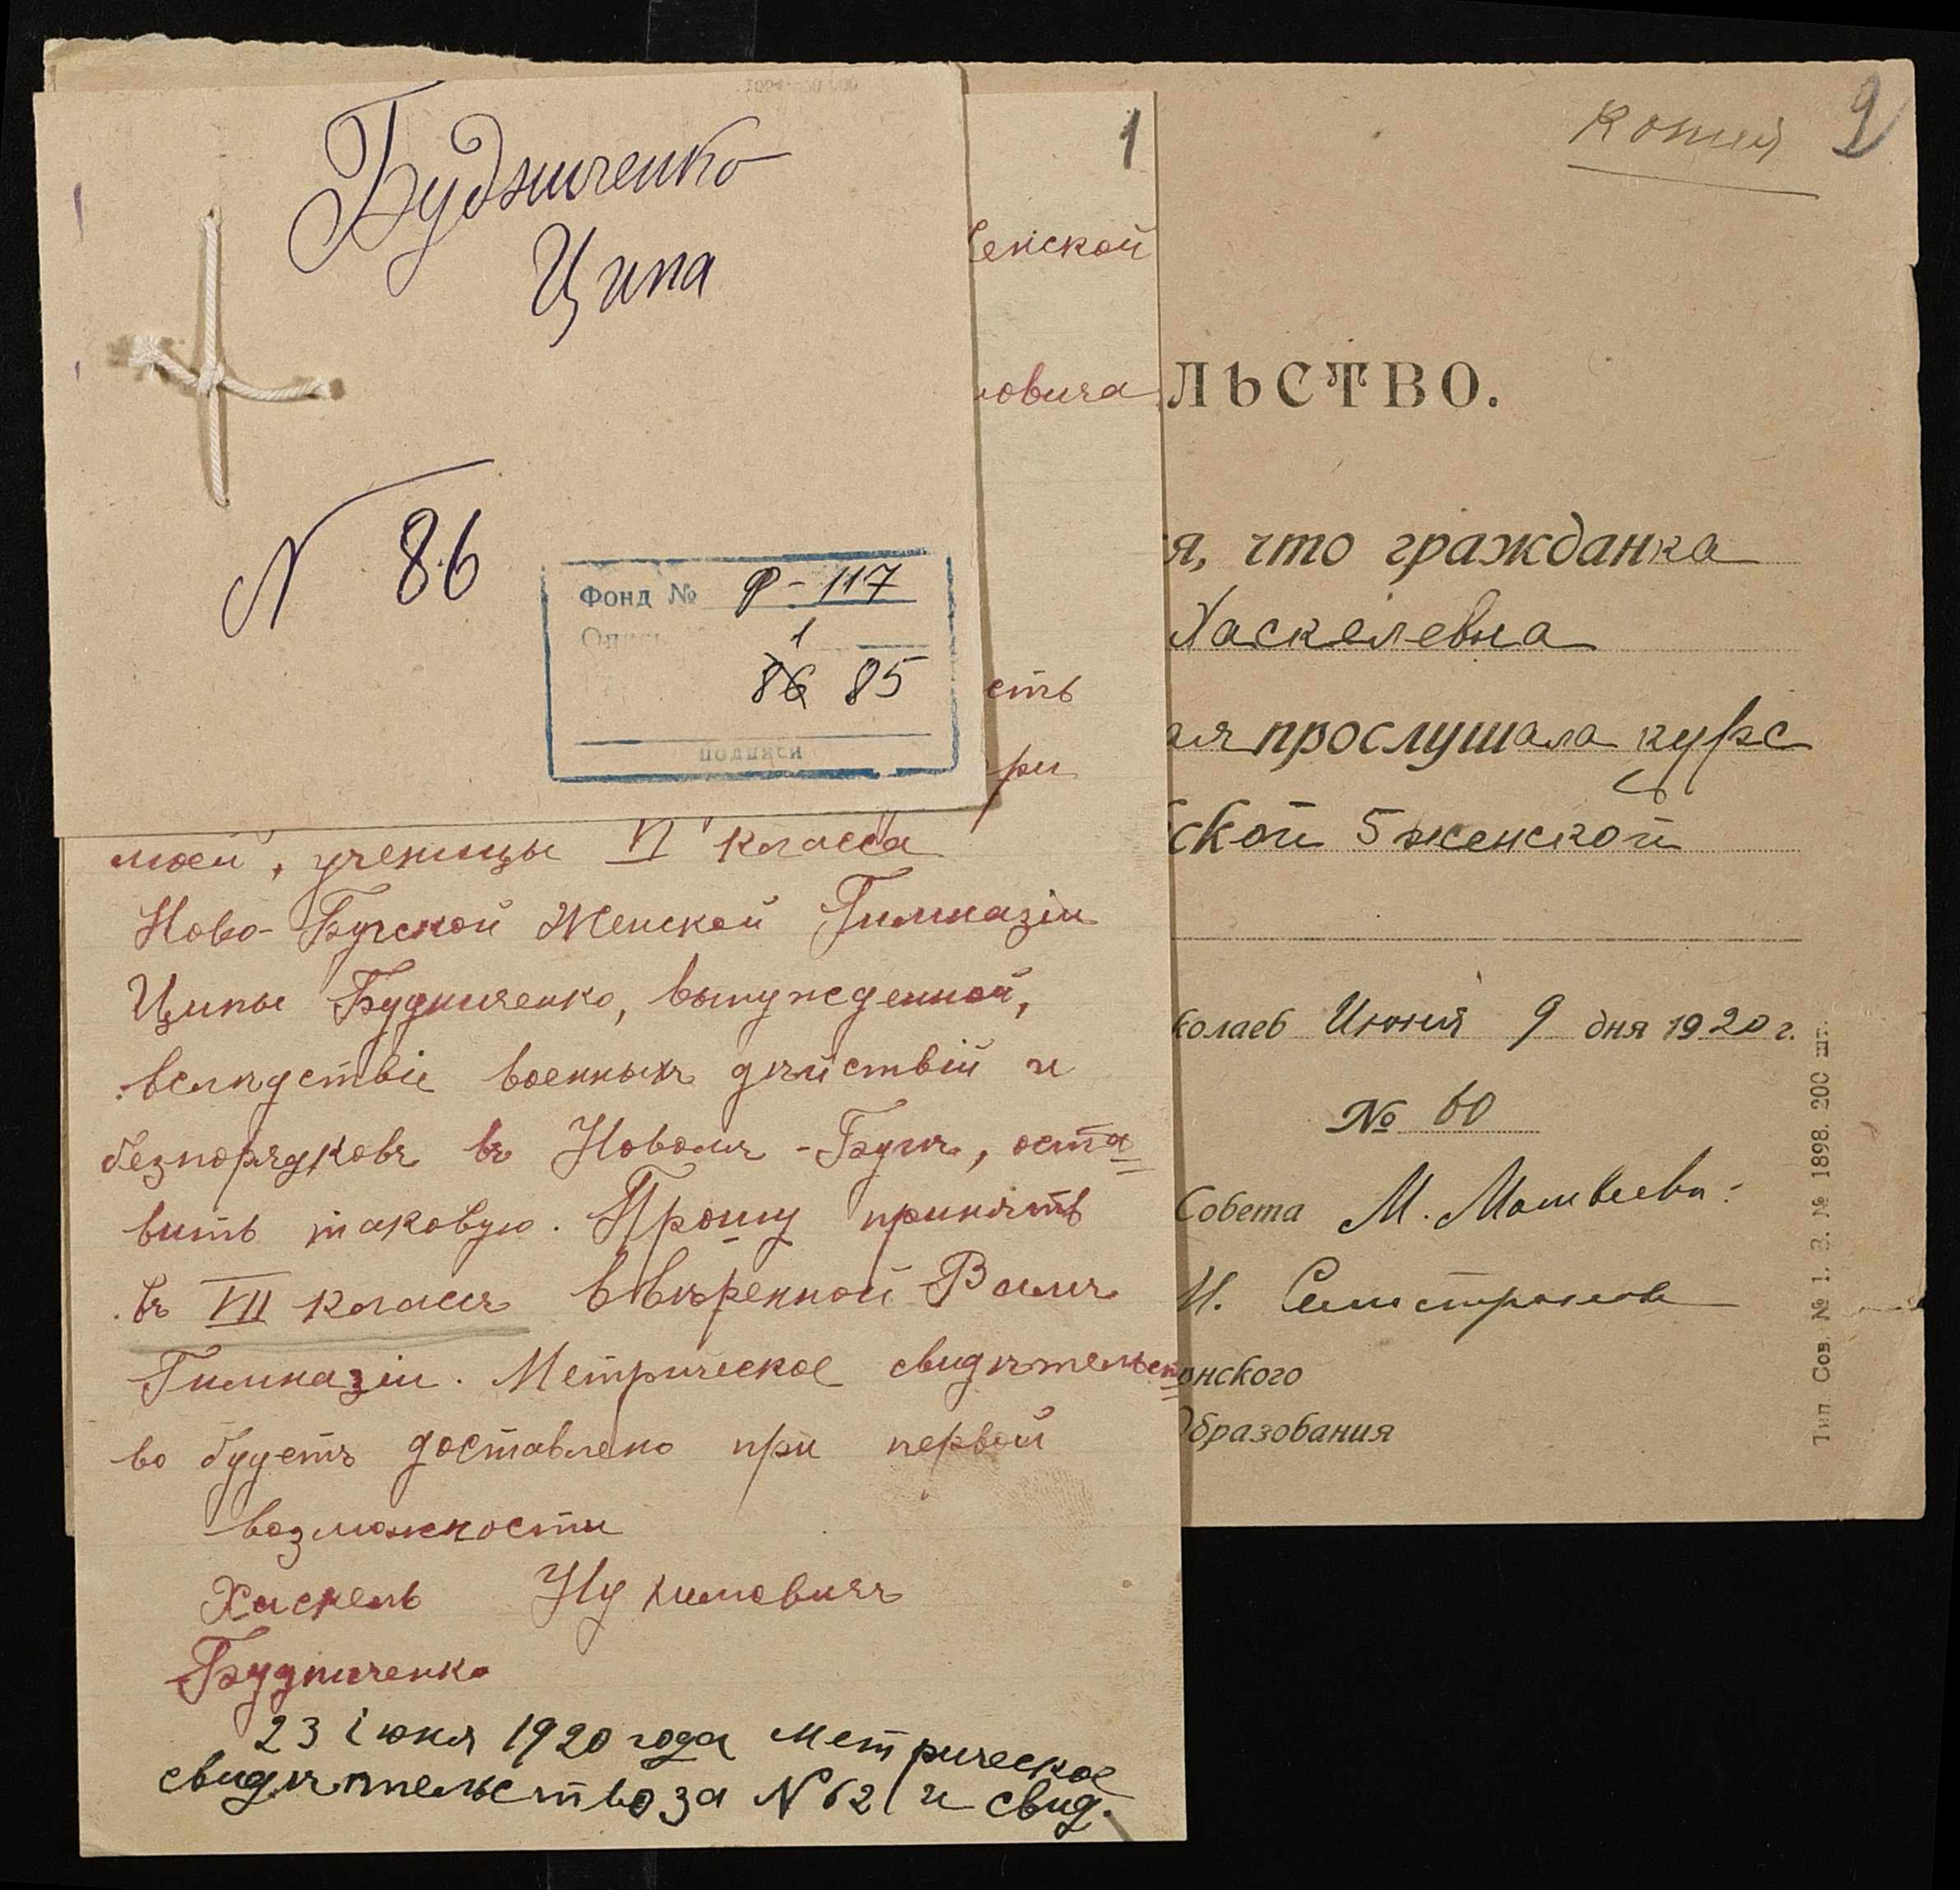 Будниченко
Ципа
N 86
Фонд № Р-117
Опись 1
86 85
подписи
1
енской
овича
сть
ри
моей, ученицы VI класса
Ново-Бугской Женской Гимназіи
Ципы Будниченко, вынужденной,
вслѣдствіе военныхъ дѣйствій и
безпорядковъ въ Новомъ-Бугѣ, оста=
вить таковую. Прошу принять
въ VII классъ ввѣренной Вамъ
Гимназіи. Метрическое свидѣтельст=
во будетъ доставлено при первой
возможности
Хаскель Нухимовичъ
Будниченко
23 іюня 1920 года Метрическое
свидѣтельство за N 62 и свид.
Копия 2
ЛЬСТВО.
я, что гражданка
Хаскелевна
ая прослушала курс
ской 5 женской
колаев Июня 9 дня 1920 г.
№ 60
Совета М. Матвеева.
И. Селистранов
онского
Образования
Тип. Сов. № 1. З. № 1898. 200 шт.